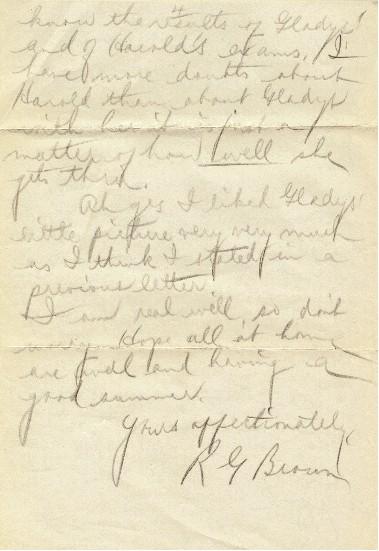 know the results of Gladys'
and of Harold's exams. I
have more doubts about
Harold than about Gladys
with her it is just a
matter of how well she
gets thru.
Ah yes I liked Gladys'
little picture very very much
as I think I stated in a
previous letter
I am real well, so don't
worry. Hope all at home
are well and having a
good summer.
Yours affectionately,
R G Brown